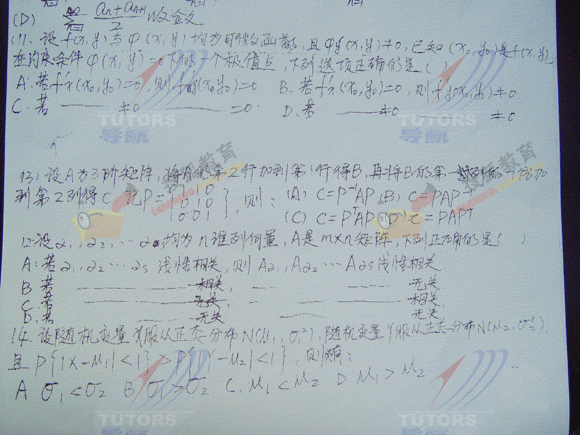 (D) ∑ (an+an+1)/2 收敛
(11. 设 f(x,y) 与 φ(x,y) 均为可微函数, 且 φ'y(x,y)≠0, 已知 (x0,y0) 是 f(x,y)
在约束条件 φ(x,y)=0 下的一个极值点, 下列选项正确的是( )
A. 若 f'x(x0,y0)=0, 则 f'y(x0,y0)=0 B. 若 f'x(x0,y0)=0, 则 f'y(x0,y0)≠0
C. 若 —— ≠0 —— =0. D. 若 —— ≠0 —— ≠0
13) 设A为3阶矩阵, 将A的第2行加到第1行得B, 再将B的第一列的-1倍加
到第2列得C 记P= (1 1 0
0 1 0
0 0 1), 则: (A) C=P⁻¹AP (B) C=PAP⁻¹
(C) C=PᵀAP (D) C=PAPᵀ
12. 设α1, α2, … αs 均为n维列向量, A是m×n矩阵, 下列正确的是( )
A. 若α1, α2 … αs 线性相关, 则 Aα1, Aα2 … Aαs 线性相关.
B 若 —— 相关, —— 无关
C. 若 —— 无关, —— 相关.
D. 若 —— 无关, —— 无关.
14. 设随机变量X服从正态分布N(μ1, σ1²), 随机变量Y服从正态分布N(μ2, σ2²),
且 P{|X-μ1|<1} > P{|Y-μ2|<1}, 则必有:
A σ1<σ2 B σ1>σ2 C. μ1<μ2 D μ1>μ2
TUTORS
导航
TUTORS
导航
TUTORS
TUTORS